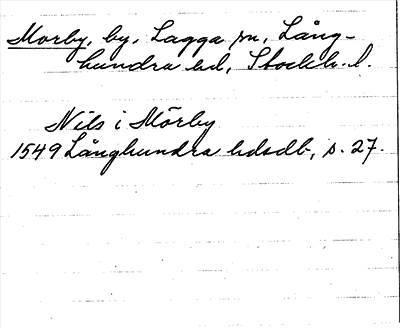 Morby, by, Lagga sn, Lång-
hundra hd, Stockh. l.
Nils i Mörby
1549 Långhundra hdsdb, s. 27.